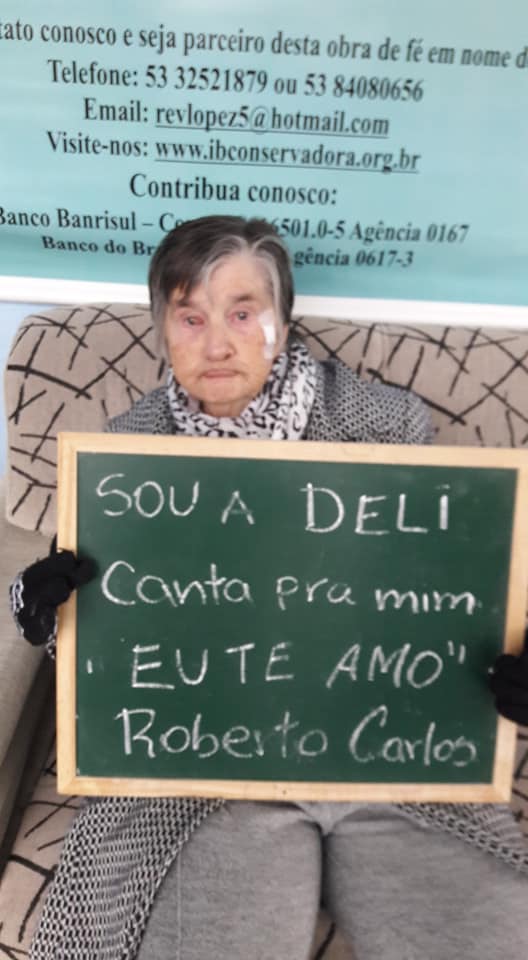 tato conosco e seja parceiro desta obra de fé em nome d
Telefone: 53 32521879 ou 53 84080656
Email: revlopez5@hotmail.com
Visite-nos: www.ibconservadora.org.br
Contribua conosco:
Banco Banrisul – Co 6501.0-5 Agência 0167
Banco do Br gência 0617-3
SOU A DELI
Canta pra mim
"EU TE AMO"
Roberto Carlos